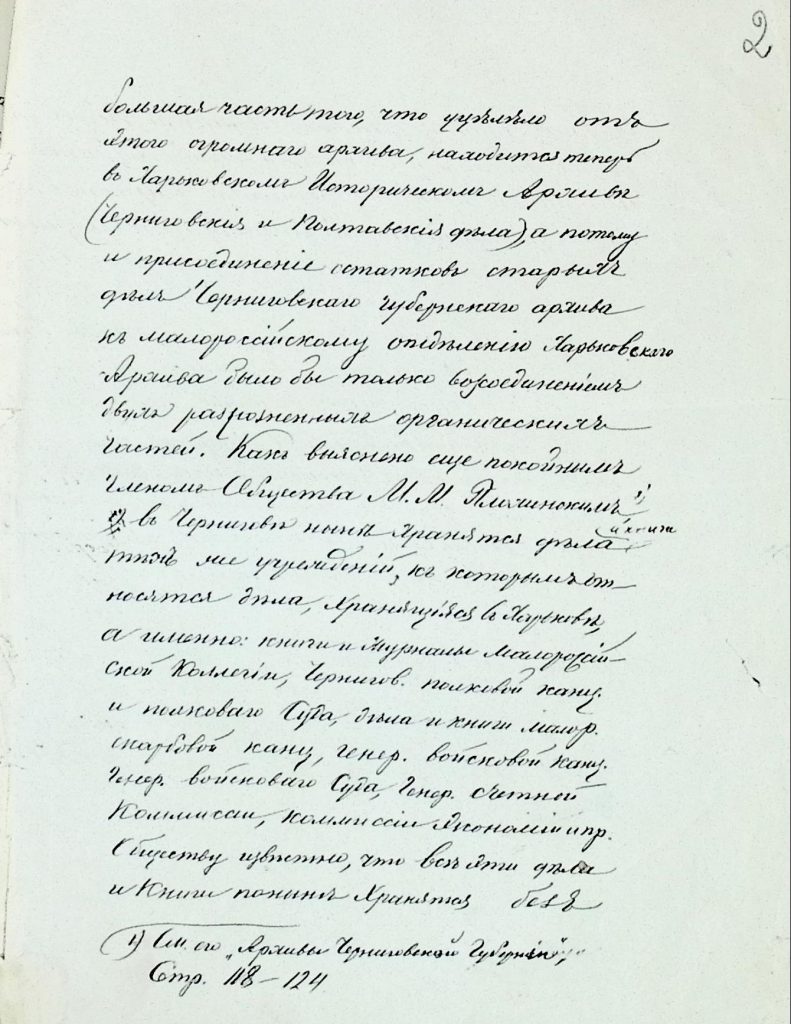 2
большая часть того, что уцѣлѣло отъ
этого огромнаго архива, находится теперь
въ Харьковскомъ Историческомъ Архивѣ
(Черниговскія и Полтавскія дѣла), а потому
и присоединеніе остатковъ старыхъ
дѣлъ Черниговскаго губернскаго архива
къ малороссійскому отдѣленію Харьковскаго
Архива было бы только возсоединеніемъ
двухъ разрозненныхъ органическихъ
частей. Какъ выяснено еще покойнымъ
членомъ Общества М. М. Плохинскимъ 1)
въ Черниговѣ нынѣ хранятся дѣла и книги
тѣхъ же учрежденій, къ которымъ от-
носятся дѣла, хранящіяся въ Харьковѣ,
а именно: книги и журналы Малороссій-
ской Коллегіи, Чернигов. полковой канц.
и полковаго Суда, дѣла и книги малор.
скарбовой канц, генер. войсковой канц.
Генер. войсковаго Суда, Генер. счетной
Коммиссіи, коммиссіи экономіи и пр.
Обществу извѣстно, что всѣ эти дѣла
и книги понынѣ хранятся безъ
1) См. его „Архивы Черниговской Губерніи",
Стр. 118-124